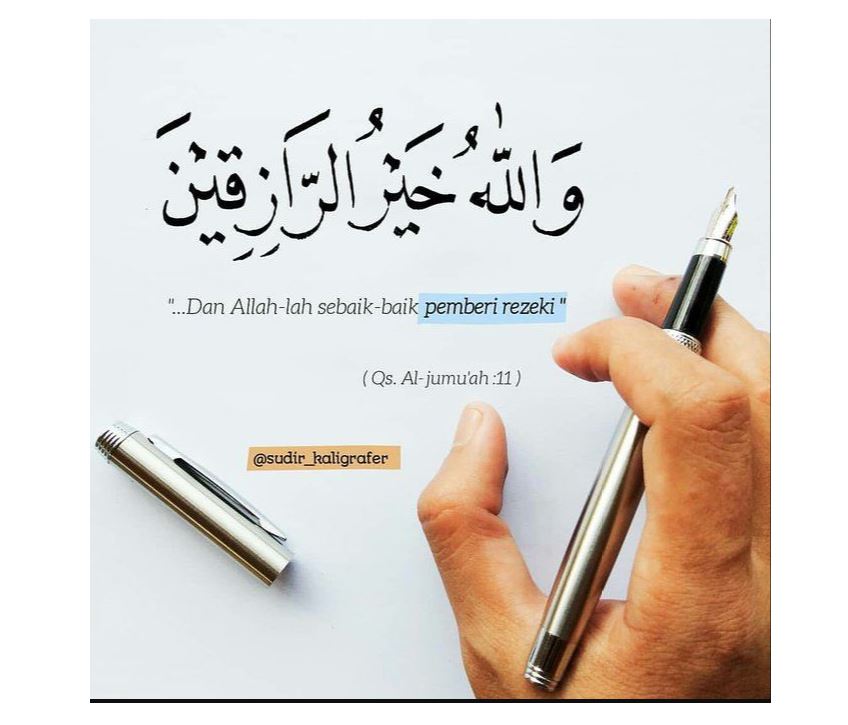 وَاللّٰهُ خَيْرُ الرَّازِقِيْنَ
"...Dan Allah-lah sebaik-baik pemberi rezeki "
( Qs. Al-jumu'ah :11 )
@sudir_kaligrafer